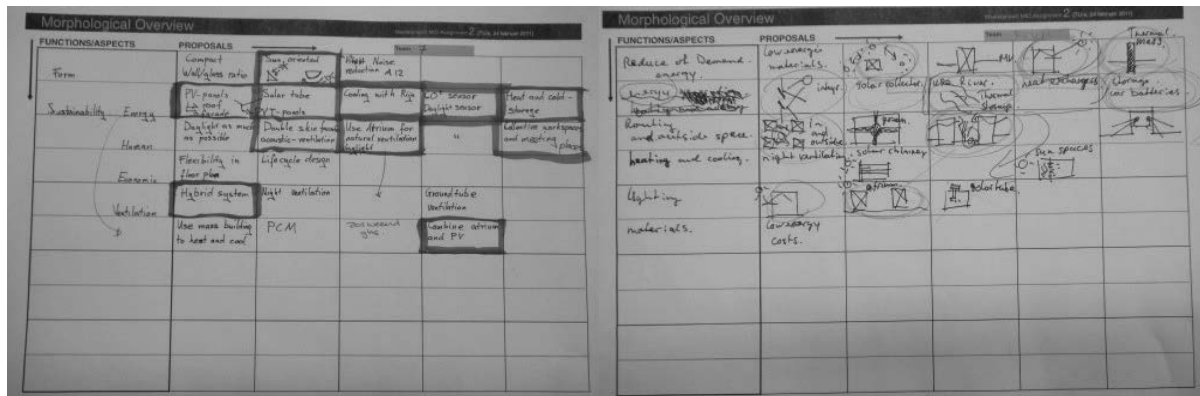 Morphological Overview
FUNCTIONS/ASPECTS PROPOSALS
Team 2
Form
Compact
Wall/glass ratio
Sun oriented
Noise
reduction A12
Sustainability Energy
PV-panels
roof
facade
Solar tube
PVT-panels
Cooling with Rijn
CO² sensor
Daylight sensor
Heat and cold-
storage
Human
Daylight as much
as possible
Double skin facade
acoustic-ventilation
Use Atrium for
natural ventilation
Collective workspace
and meeting
place
Economic
Flexibility in
floor plan
Lifecycle design
Ventilation
Hybrid system
Night Ventilation
Groundtube
Ventilation
Use mass building
to heat and cool
PCM
Combine atrium
and PV
Morphological Overview
FUNCTIONS/ASPECTS PROPOSALS
Team
Reduce of Demand
energy.
low energie
materials.
heat exchangers
Thermal
mass.
energy
integr.
solar collector
use River.
Thermal
storage
storage.
car batteries.
Routing
and outside space.
In
and
outside
green.
heating and cooling.
night ventilation
solar chimney
sun spaces
Lighting
atrium
solar tube
materials.
low energy
costs.